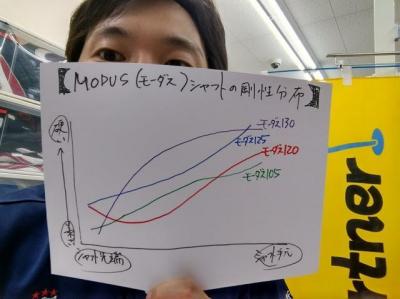 【MODUS(モーダス)シャフトの剛性分布】
モーダス130
モーダス125
モーダス120
モーダス105
硬い
シャフト先端
シャフト手元
artner